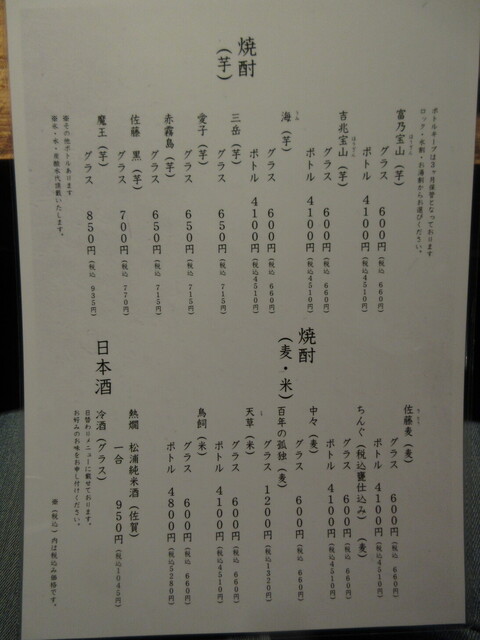 焼酎
(芋)
ボトルキープは3ヶ月保管となっております
ロック・水割・お湯割からお選びください。
富乃宝山(芋)
グラス 600円(税込 660円)
ボトル 4100円(税込4510円)
吉兆宝山(芋)
グラス 600円(税込 660円)
ボトル 4100円(税込4510円)
海(芋)
グラス 600円(税込 660円)
ボトル 4100円(税込4510円)
三岳(芋)
グラス 650円(税込 715円)
愛子(芋)
グラス 650円(税込 715円)
赤霧島(芋)
グラス 650円(税込 715円)
佐藤 黒(芋)
グラス 700円(税込 770円)
魔王(芋)
グラス 850円(税込 935円)
※その他ボトルあります
※氷・水・炭酸水代頂戴いたします。
焼酎
(麦・米)
佐藤麦(麦)
グラス 600円(税込 660円)
ボトル 4100円(税込4510円)
ちんぐ(税込甕仕込み) (麦)
グラス 600円(税込 660円)
ボトル 4100円(税込4510円)
中々(麦)
グラス 600円(税込 660円)
百年の孤独(麦)
グラス 1200円(税込1320円)
天草(米)
グラス 600円(税込 660円)
ボトル 4100円(税込4510円)
鳥飼(米)
グラス 600円(税込 660円)
ボトル 4800円(税込5280円)
日本酒
熱燗 松浦純米酒(佐賀)
一合 950円(税込1045円)
冷酒(グラス)
日替わりメニューに載せております。
お好みのお味をお申し付けください。
※(税込)内は税込み価格です。